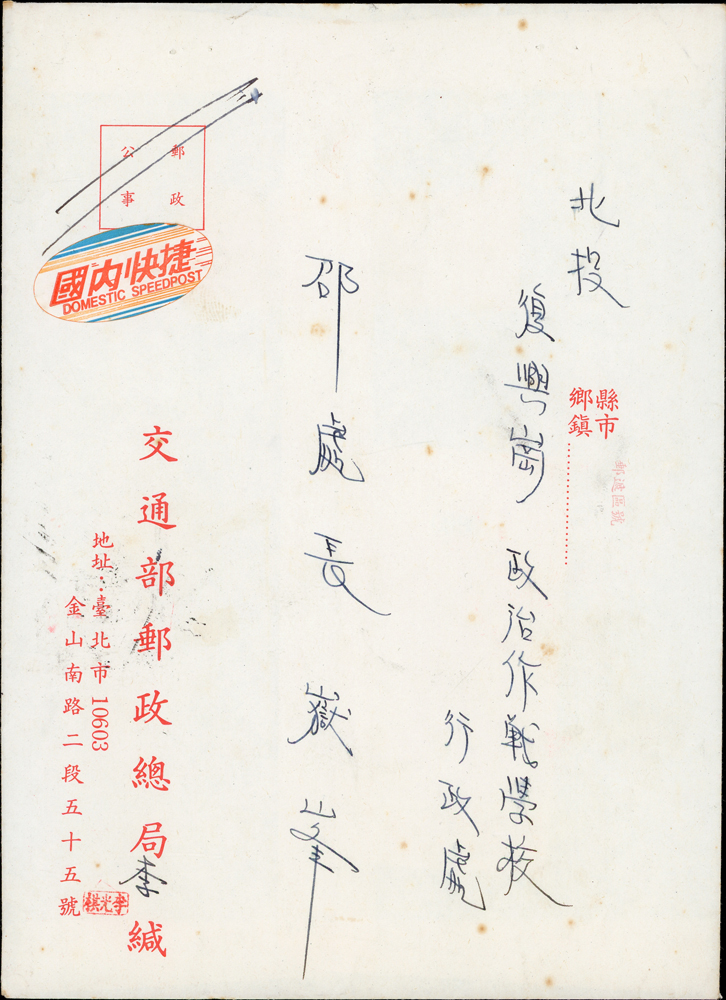 北投
縣市
鄉鎮
郵遞區號
復興崗 政治作戰學校
行政處
邵處長 嶽峯
郵政
公事
國內快捷
DOMESTIC SPEEDPOST
交通部郵政總局 李 緘
地址：臺北市10603
金山南路二段五十五號
李光棋